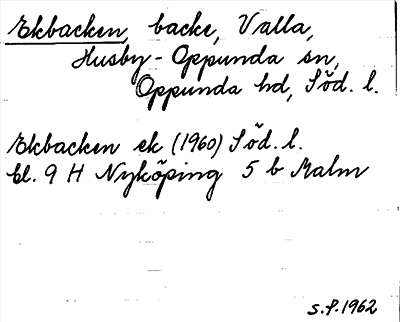 Ekbacken, backe, Valla,
Husby-Oppunda sn,
Oppunda hd, Söd. l.
Ekbacken ek (1960) Söd. l.
bl. 9 H Nyköping 5 b Malm
S.P. 1962